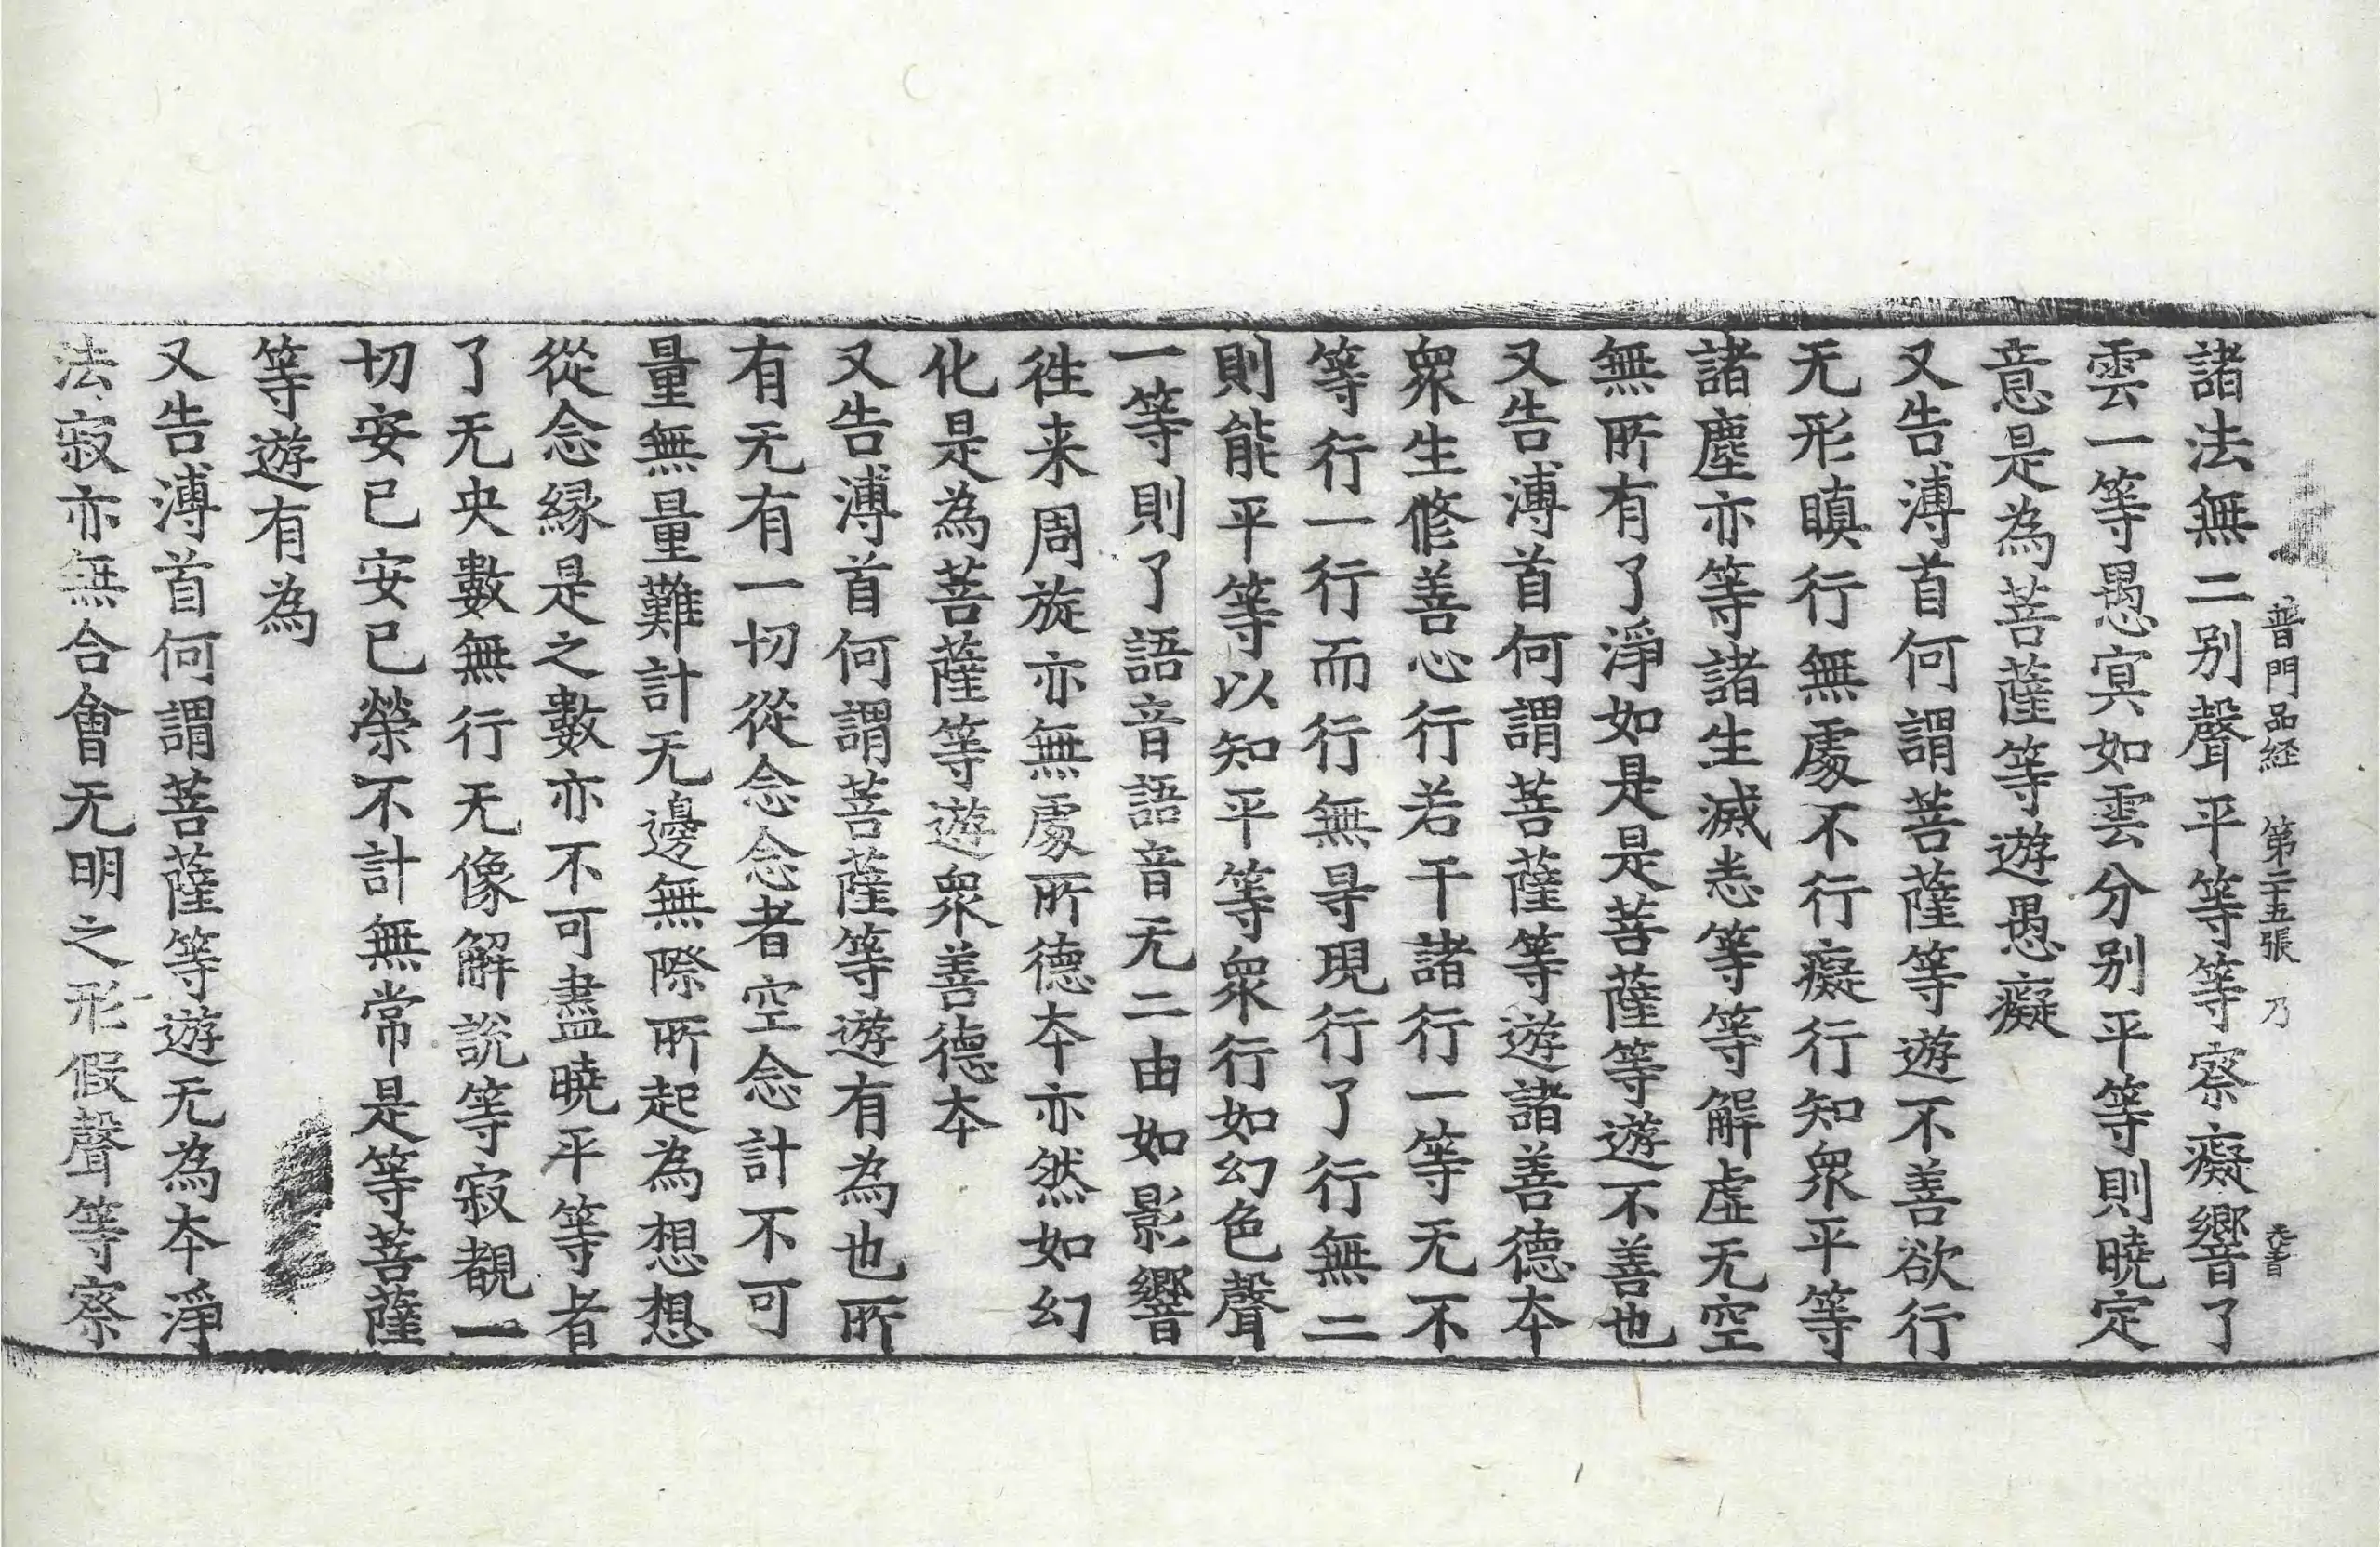 普門品経 第二十五張 乃
諸法無二别聲平等等察癡響了
雲一等愚冥如雲分别平等則曉定
意是為菩薩等遊愚癡
又告溥首何謂菩薩等遊不善欲行
无形瞋行無處不行癡行知衆平等
諸塵亦等諸生滅悉等等解虛无空
無所有了淨如是是菩薩等遊不善也
又告溥首何謂菩薩等遊諸善德夲
衆生修善心行若干諸行一等无不
等行一行而行無㝵現行了行無二
則能平等以知平等衆行如幻色聲
一等則了語音語音无二由如影響
徃来周旋亦無處所德夲亦然如幻
化是為菩薩等遊衆善德夲
又告溥首何謂菩薩等遊有為也所
有无有一切從念念者空念計不可
量無量難計无邊無際所起為想想
從念縁是之數亦不可盡曉平等者
了无央數無行无像解說等寂覩一
切安已安已榮不計無常是等菩薩
等遊有為
又告溥首何謂菩薩等遊无為夲淨
法寂亦無合會无明之形假聲等察